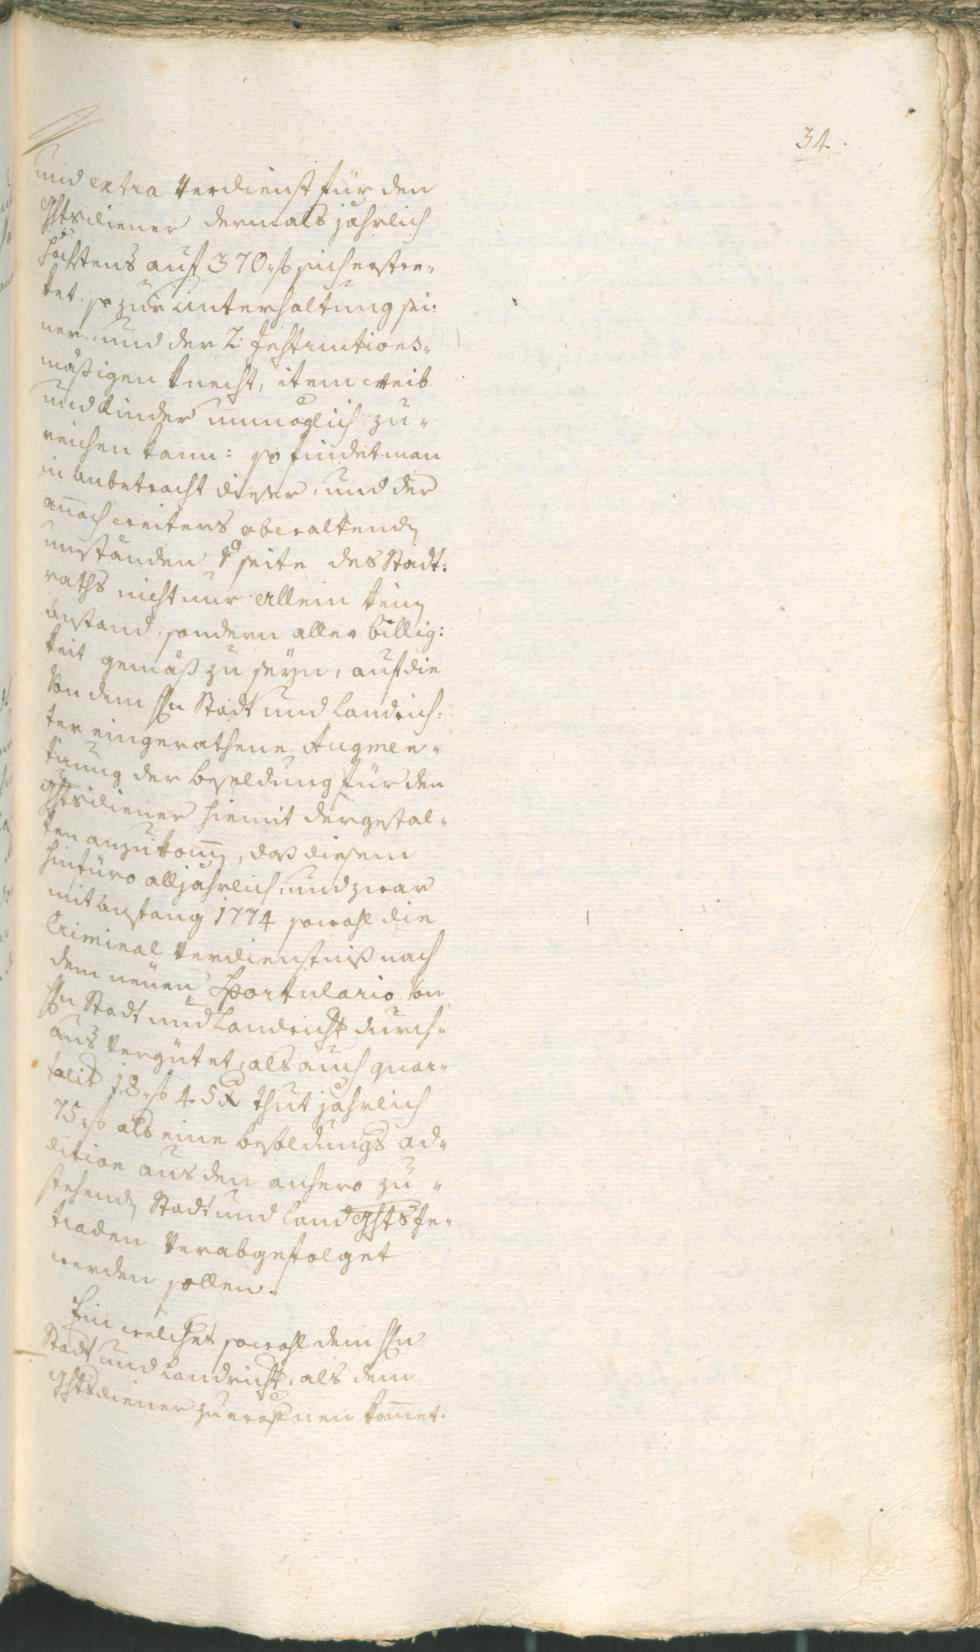 34.
und extra Verdienst für den
ghtsdiener dermals jährlich
höchstens auf 370 f sich erstre-
ket, so zur Unterhaltung sei-
ner, und der 2. Instructions-
mäßigen Knecht, item Weib
und Kinder unmöglich zu-
reichen kann: so findet man
in Anbetracht dieser, und der
annoch weiters obwaltenden
umständen seite des Stadt-
raths nicht nur allein kein
anstand, sondern aller billig-
keit gemäß zu seyn, auf die
Von dem Hn Stadt und Landrich-
ter eingerathene Augmen-
tirung der besoldung für den
ghtsdiener hiemit dergestal-
ten anzukommen, daß diesem
hinfüro alljährlich, und zwar
mit anfang 1774 sowohl die
Criminal Verdienstniß nach
dem neüen Sportulario Von
Hn Stadt und Landricht durch-
aus Vergütet, als auch quar-
taliter 18 f 45 x thut jährlich
75 f als eine besoldungs ad-
dition aus den anhero zu-
stehenden Stadt und Landghts Ge-
traden Verabgefolget
werden sollen.
Ein welches sowohl dem Hn
Stadt und Landricht, als dem
ghtsdiener zu eröffnen kommet.